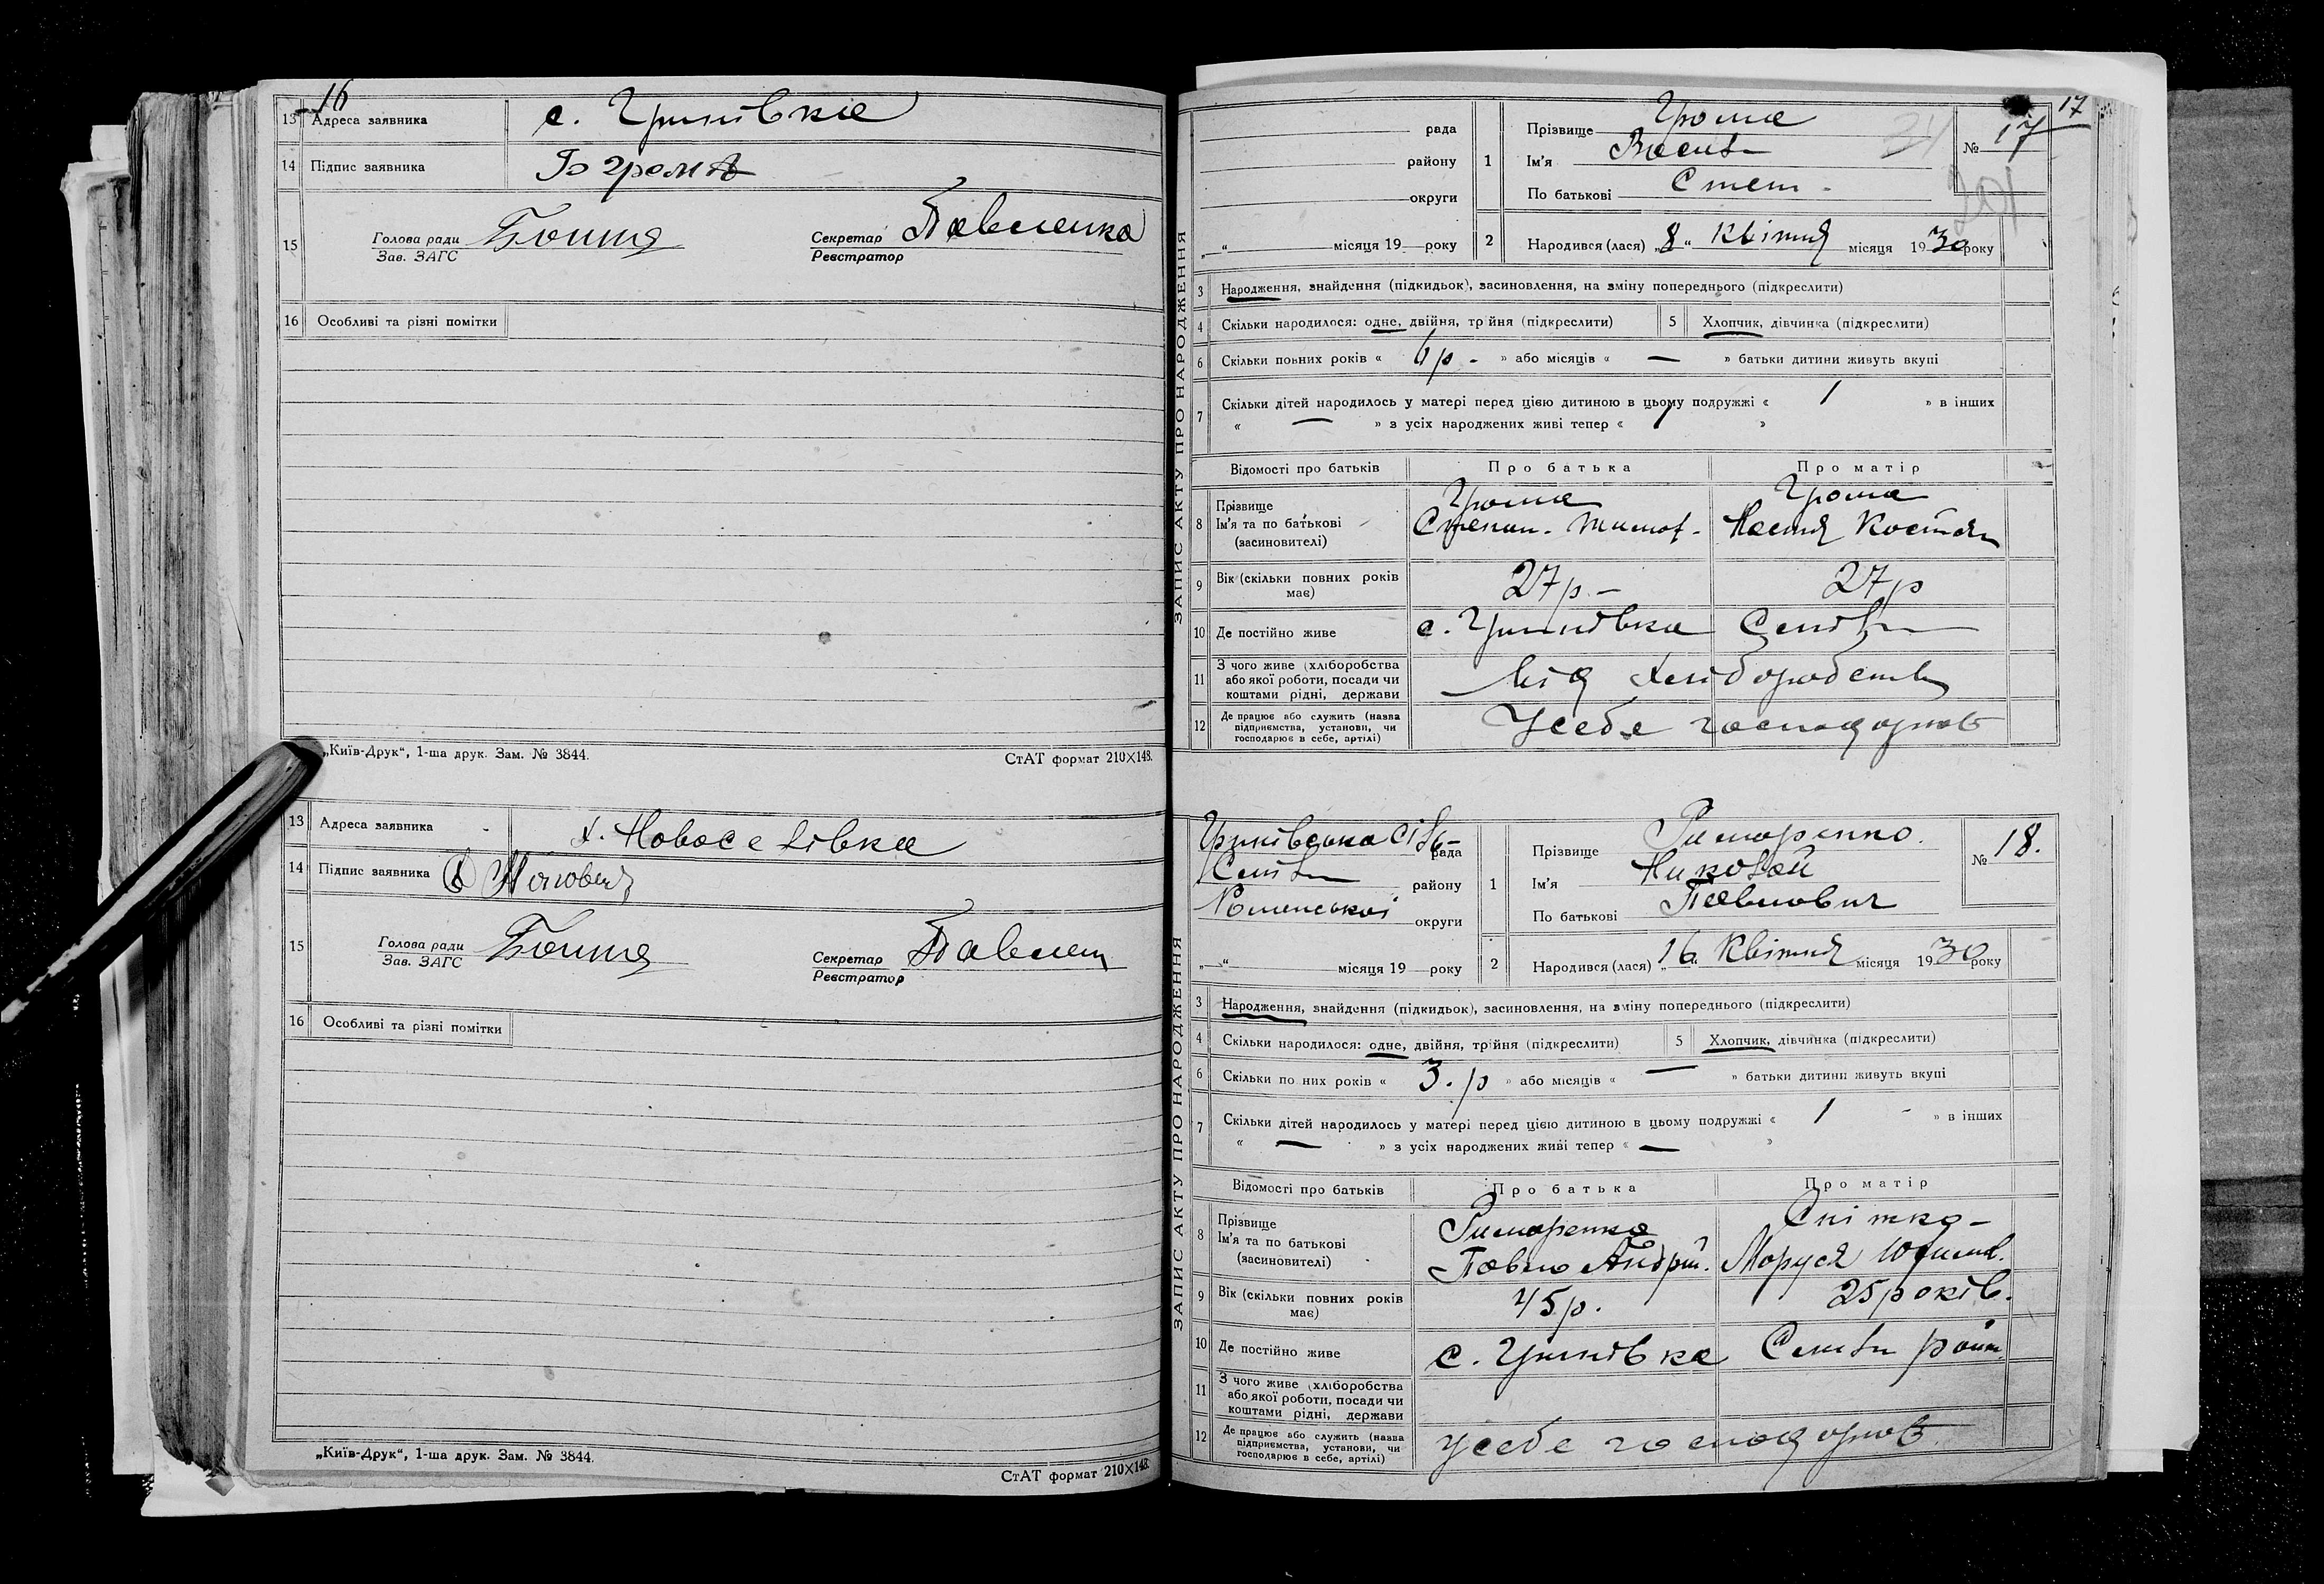 16
13 Адреса заявника с. Гринівка
14 Підпис заявника Б грома
15 Голова ради
Зав. ЗАГС
Секретар Павленко
Реєстратор
16 Особливі та різні помітки
„Київ-Друк“, 1-ша друк. Зам. № 3844.
СтАТ формат 210×148.
13 Адреса заявника х. Новоселівка
14 Підпис заявника
15 Голова ради
Зав. ЗАГС
Секретар Павлен
Реєстратор
16 Особливі та різні помітки
„Київ-Друк“, 1-ша друк. Зам. № 3844.
СтАТ формат 210×148.
17
ЗАПИС АКТУ ПРО НАРОДЖЕННЯ
рада
району
округи
„ “ місяця 19 року
1 Прізвище Грома
Ім'я Василь
По батькові Степ.
№ 17
2 Народився (лася) „8“ Квітня місяця 1930 року
3 Народження, знайдення (підкидьок), засиновлення, на зміну попереднього (підкреслити)
4 Скільки народилося: одне, двійня, трійня (підкреслити) 5 Хлопчик, дівчинка (підкреслити)
6 Скільки повних років « 6р - » або місяців « — » батьки дитини живуть вкупі
7 Скільки дітей народилось у матері перед цією дитиною в цьому подружжі « 1 » в інших
« — » з усіх народжених живі тепер « 1 »
Відомості про батьків Про батька Про матір
8 Прізвище Грома Грома
Ім'я та по батькові Степан. Тимоф. Настя Костян
(засиновителі)
9 Вік (скільки повних років має) 27р. — 27р
10 Де постійно живе с. Гринівка
11 З чого живе (хліборобства або якої роботи, посади чи коштами рідні, держави від хліборобств
12 Де працює або служить (назва підприємства, установи, чи господарює в себе, артілі) Усебе господарює
ЗАПИС АКТУ ПРО НАРОДЖЕННЯ
Гринівська сіль- рада
району
Роменської округи
„—“ місяця 19 року
1 Прізвище Римаренко.
Ім'я Николай
По батькові Павлович
№ 18.
2 Народився (лася) „16“ Квітня місяця 1930 року
3 Народження, знайдення (підкидьок), засиновлення, на зміну попереднього (підкреслити)
4 Скільки народилося: одне, двійня, трійня (підкреслити) 5 Хлопчик, дівчинка (підкреслити)
6 Скільки по них років « 3. р » або місяців « — » батьки дитини живуть вкупі
7 Скільки дітей народилось у матері перед цією дитиною в цьому подружжі « 1 - » в інших
« — » з усіх народжених живі тепер « — »
Відомості про батьків Про батька Про матір
8 Прізвище Римаренко Снітко-
Ім'я та по батькові Павло Андрій. Маруся Юхим.
(засиновителі)
9 Вік (скільки повних років має) 45р. 25 років.
10 Де постійно живе с. Гринівка
11 З чого живе (хліборобства або якої роботи, посади чи коштами рідні, держави
12 Де працює або служить (назва підприємства, установи, чи господарює в себе, артілі) усебе господарює